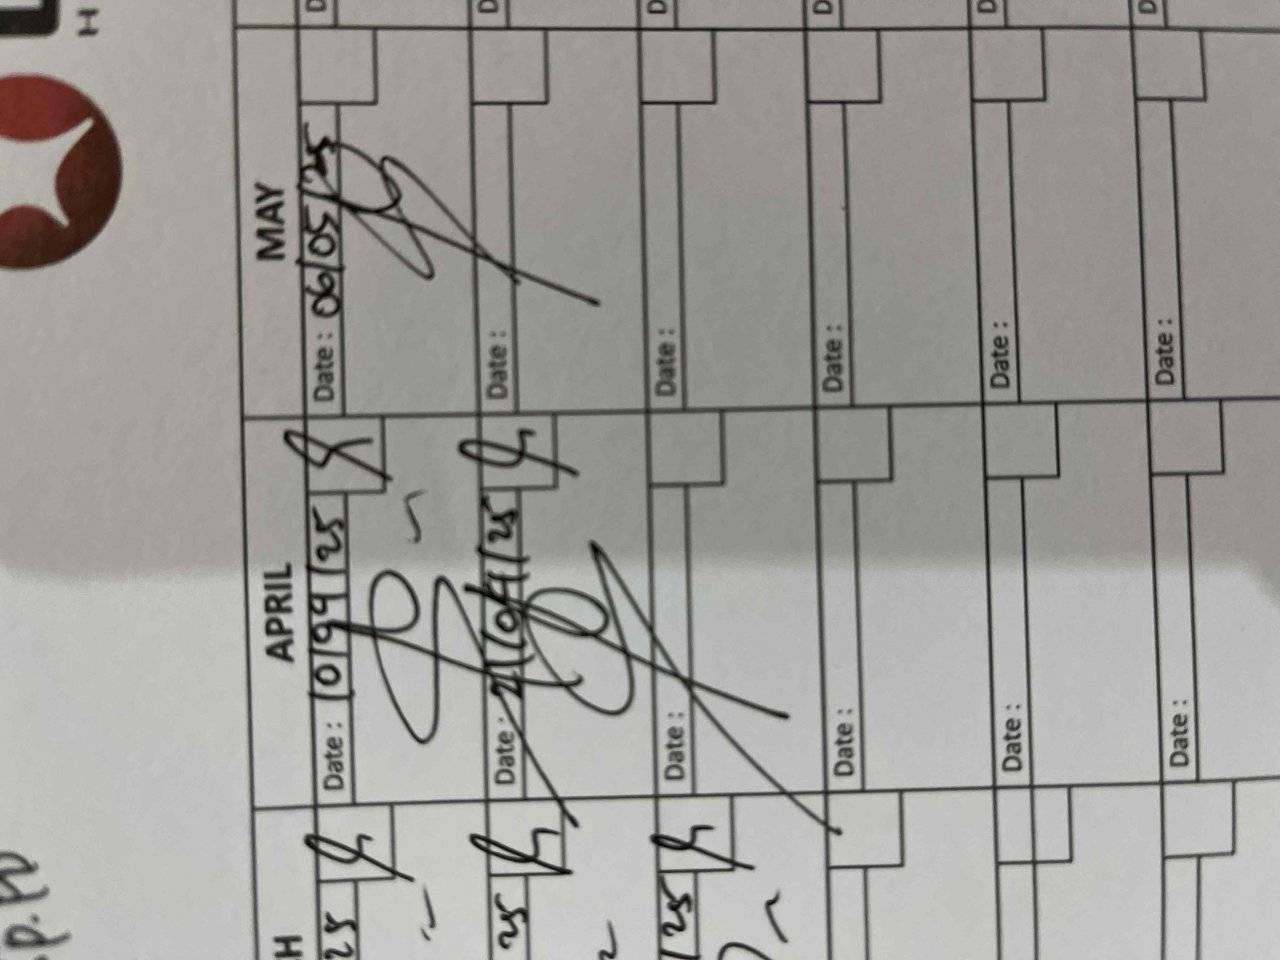 H
APRIL
MAY
25
Date : 10/94/25
Date : 06/05/25
D
25
Date : 21/04/25
Date :
D
/25
Date :
Date :
D
Date :
Date :
D
Date :
Date :
D
Date :
Date :
D
p.
H